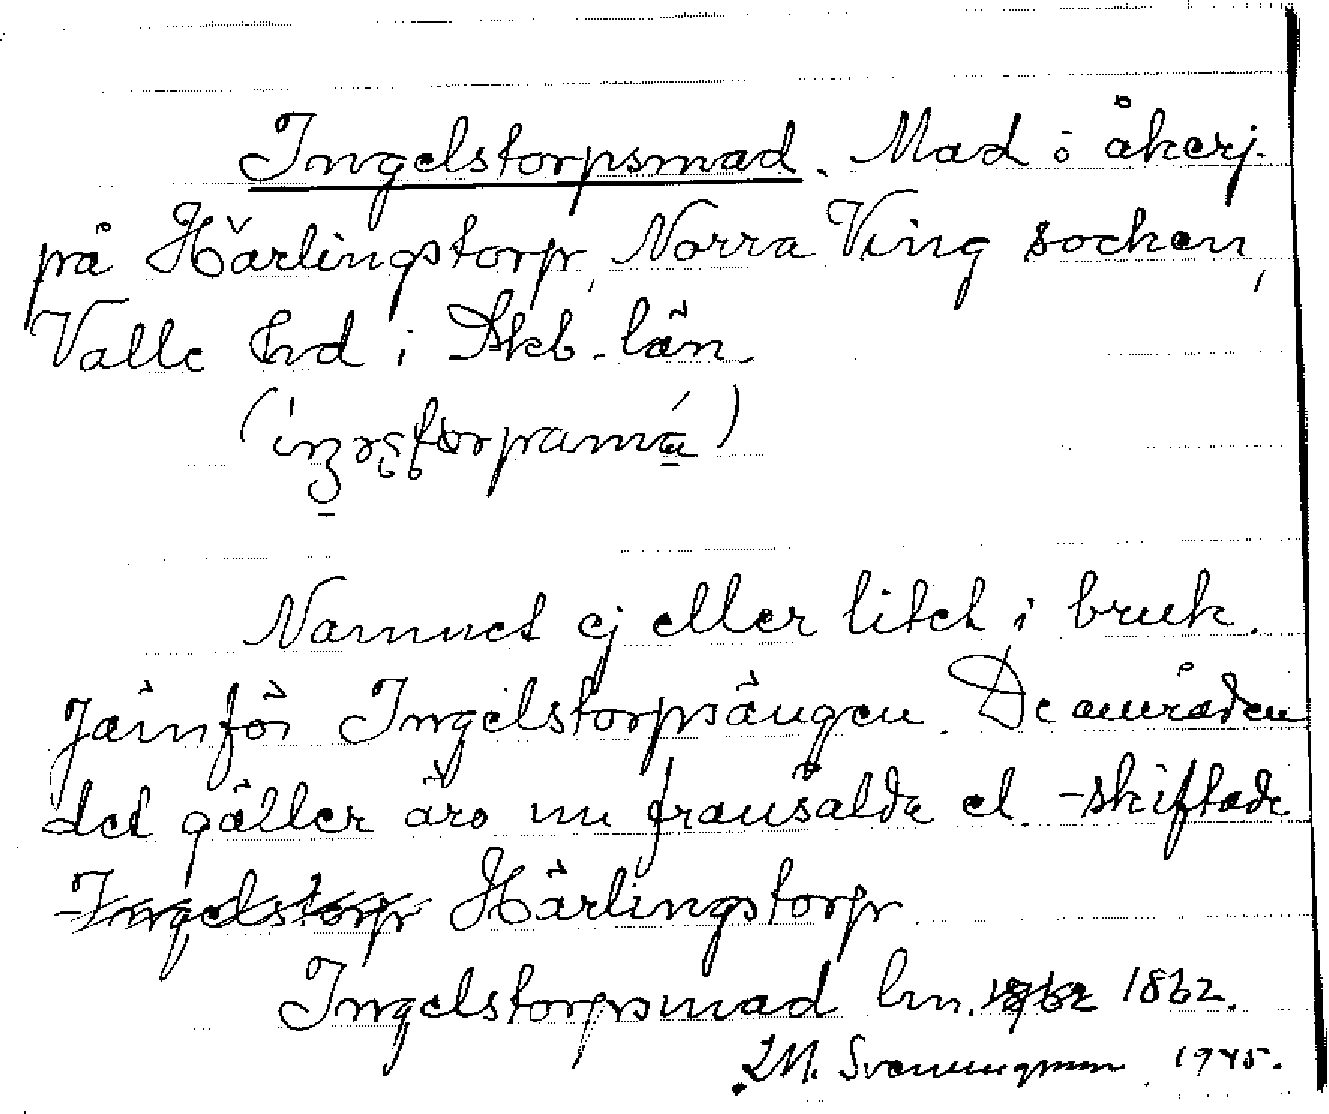 Ingelstorpsmad. Mad o åkerj.
på Härlingstorp, Norra Ving socken,
Valle hd i Skb. län.
Namnet ej eller litet i bruk.
Jämför Ingelstorpsängen. De områden
det gäller äro nu frånsålda el. -skiftade
Ingelstorp Härlingstorp
Ingelstorpsmad lm. 1862 1862.
M. Svenungsson 1945.